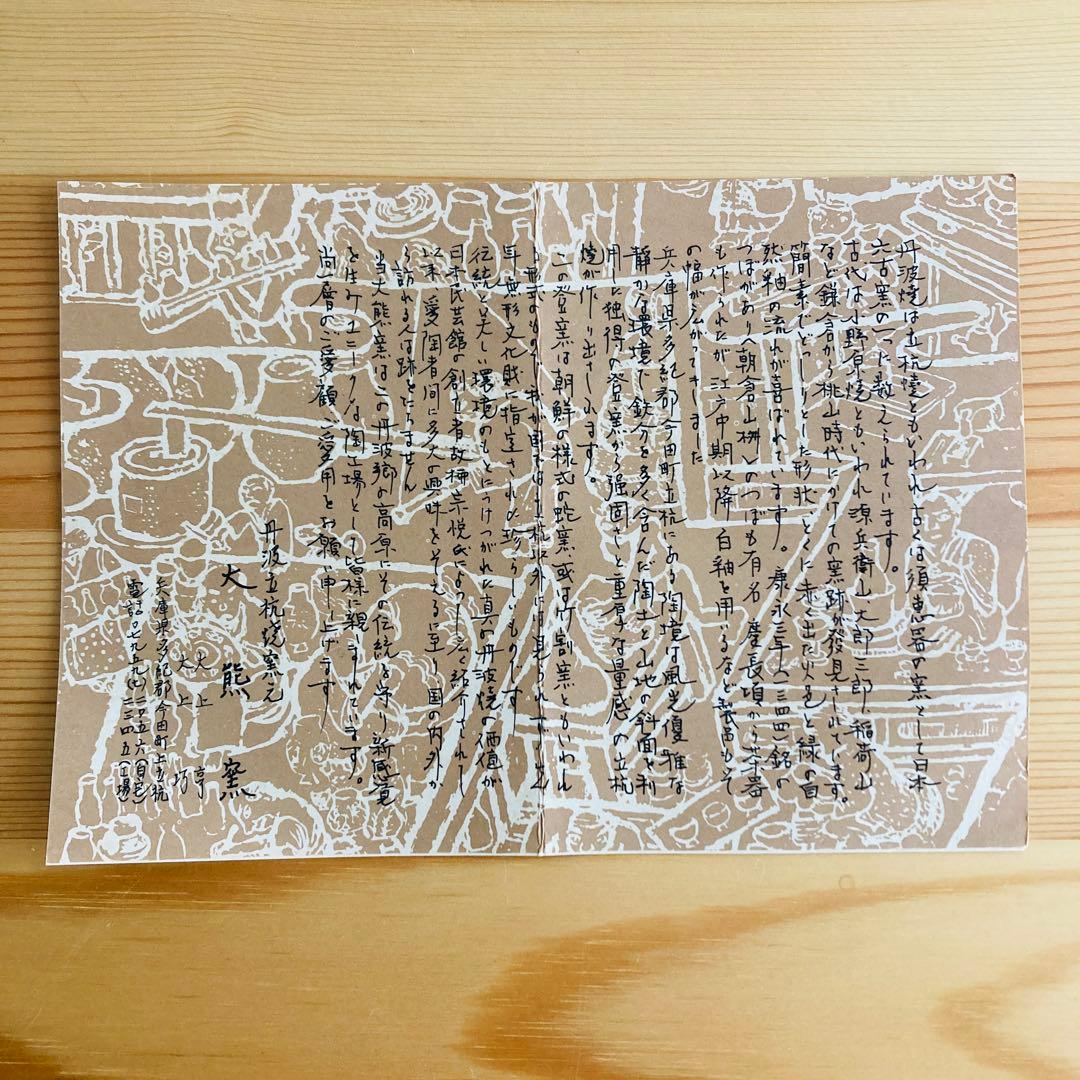 丹波焼は立杭焼ともいわれ 古くは須恵器の窯として日本
六古窯の一つに数えられています。
古代は小野原焼ともいわれ 源兵衛山 太郎三郎 稲荷山
など鎌倉から桃山時代にかけての窯跡が発見されています。
簡素でどっしりとした形状 とくに赤く出た火色と緑の自
然釉の流れが喜ばれています。康永三年(一三四四)銘の
つぼがあり 朝倉山椒のつぼも有名 慶長頃から茶器
も作られたが 江戸中期以降 白釉を用いるなど 製品もそ
の幅が広がってきました
兵庫県多紀郡今田町立杭にある陶境は風光優雅な
静かな環境に鉄分を多く含んだ陶土と山地の斜面を利
用した独得の登窯から強固さと重厚な量感の立杭
焼が作り出されます。
この登窯は朝鮮の様式の蛇窯、或は竹割窯ともいわれ
我が国では立杭以外には見られず
無形文化財に指定された珍らしいものです
伝統と美しい環境のもとにつけつがれた真の丹波焼の価値が
日本民芸館の創立者故柳宗悦氏によって 紹介されて
以来 愛陶者間に多大の興味をそそるに至り 国の内外か
ら訪れる人は跡をたちません
当大熊窯はこの丹波郷の高原にその伝統を守り新感覚
を生みユニークな陶工場として皆様に親しまれています。
尚一層のご愛顧、ご愛用をお願い申し上げます
丹波立杭焼窯元
大熊窯
大上 亨
大上 巧
兵庫県多紀郡今田町上立杭
電話〇七九五九(七)
(自宅)
(工場)